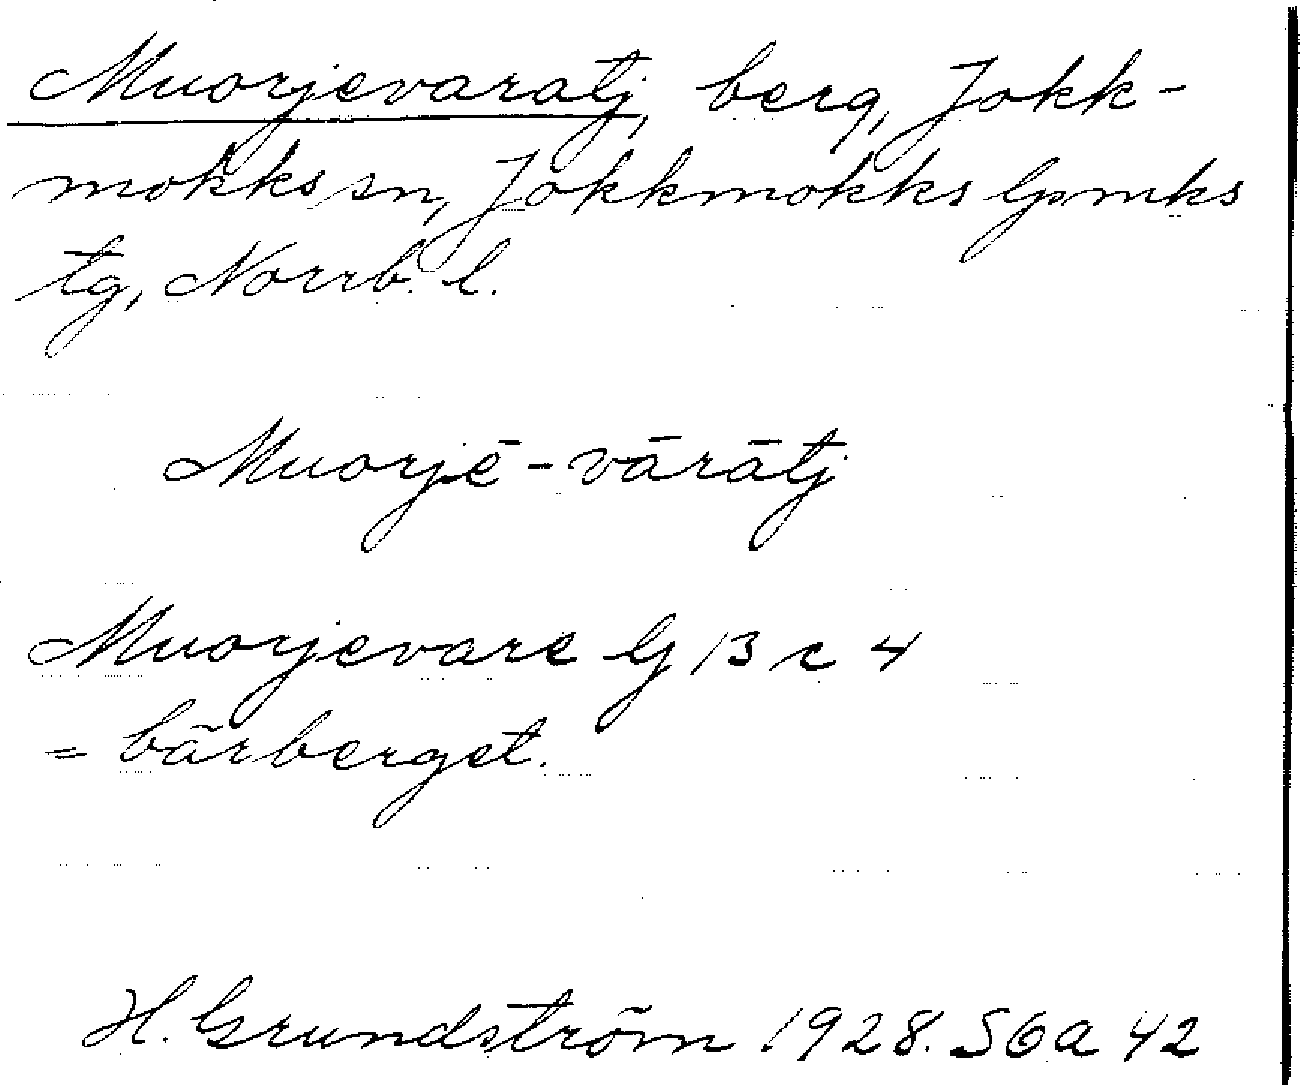 Muorjevaratj, berg, Jokk-
mokks sn, Jokkmokks lpmks
tg, Norrb. l.
Muorjē-vārātj
Muorjevare G 13 c 4
= bärberget.
H. Grundström 1928. S6a 42